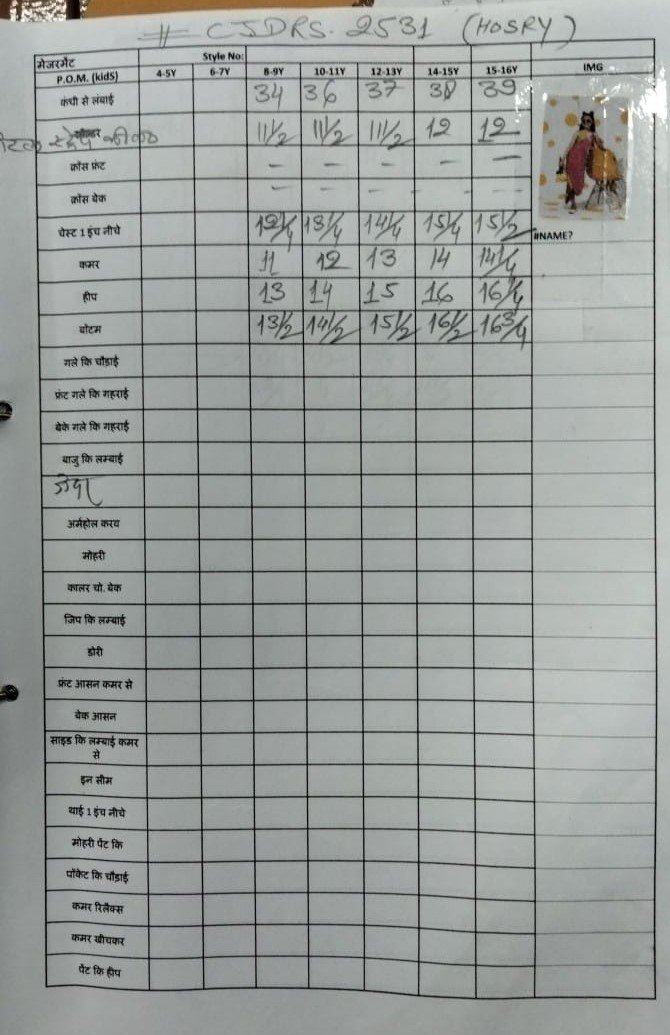 # CJDRS. 2531 (HOSRY)
मेजरमेंट Style No:
P.O.M. (kidS) 4-5Y 6-7Y 8-9Y 10-11Y 12-13Y 14-15Y 15-16Y IMG
कंधी से लंबाई 34 36 37 38 39
11 1/2 11 1/2 11 1/2 12 12
क्रॉस फ्रंट - - - - -
क्रॉस बेक - - - - -
चेस्ट 1 इंच नीचे 12 1/4 13 1/4 14 1/4 15 1/4 15 1/2 #NAME?
कमर 11 12 13 14 14 1/4
हीप 13 14 15 16 16 1/4
बोटम 13 1/2 14 1/2 15 1/2 16 1/2 16 3/4
गले कि चौड़ाई
फ्रंट गले कि गहराई
बेके गले कि गहराई
बाजु कि लम्बाई
अर्महोल करय
मोहरी
कालर चो. बेक
जिप कि लम्बाई
डोरी
फ्रंट आसन कमर से
बेक आसन
साइड कि लम्बाई कमर
से
इन सीम
थाई 1 इंच नीचे
मोहरी पेंट कि
पॉकेट कि चौड़ाई
कमर रिलैक्स
कमर खीचकर
पेंट कि हीप